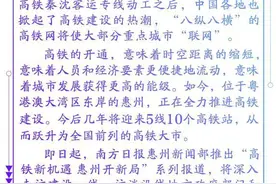 高铁秦沈客运专线动工之后，中国各地也
掀起了高铁建设的热潮，“八纵八横”的
高铁网将使大部分重点城市“联网”。
高铁的开通，意味着时空距离的缩短，
意味着人员和经济要素更便捷地流动，意味
着城市发展获得更高的能级。如今，位于粤
港澳大湾区东岸的惠州，正在全力推进高铁
建设。今后几年将迎来5线10个高铁站，从
而跃升为全国前列的高铁大市。
即日起，南方日报惠州新闻部推出“高
铁新机遇 惠州开新局”系列报道，将深入